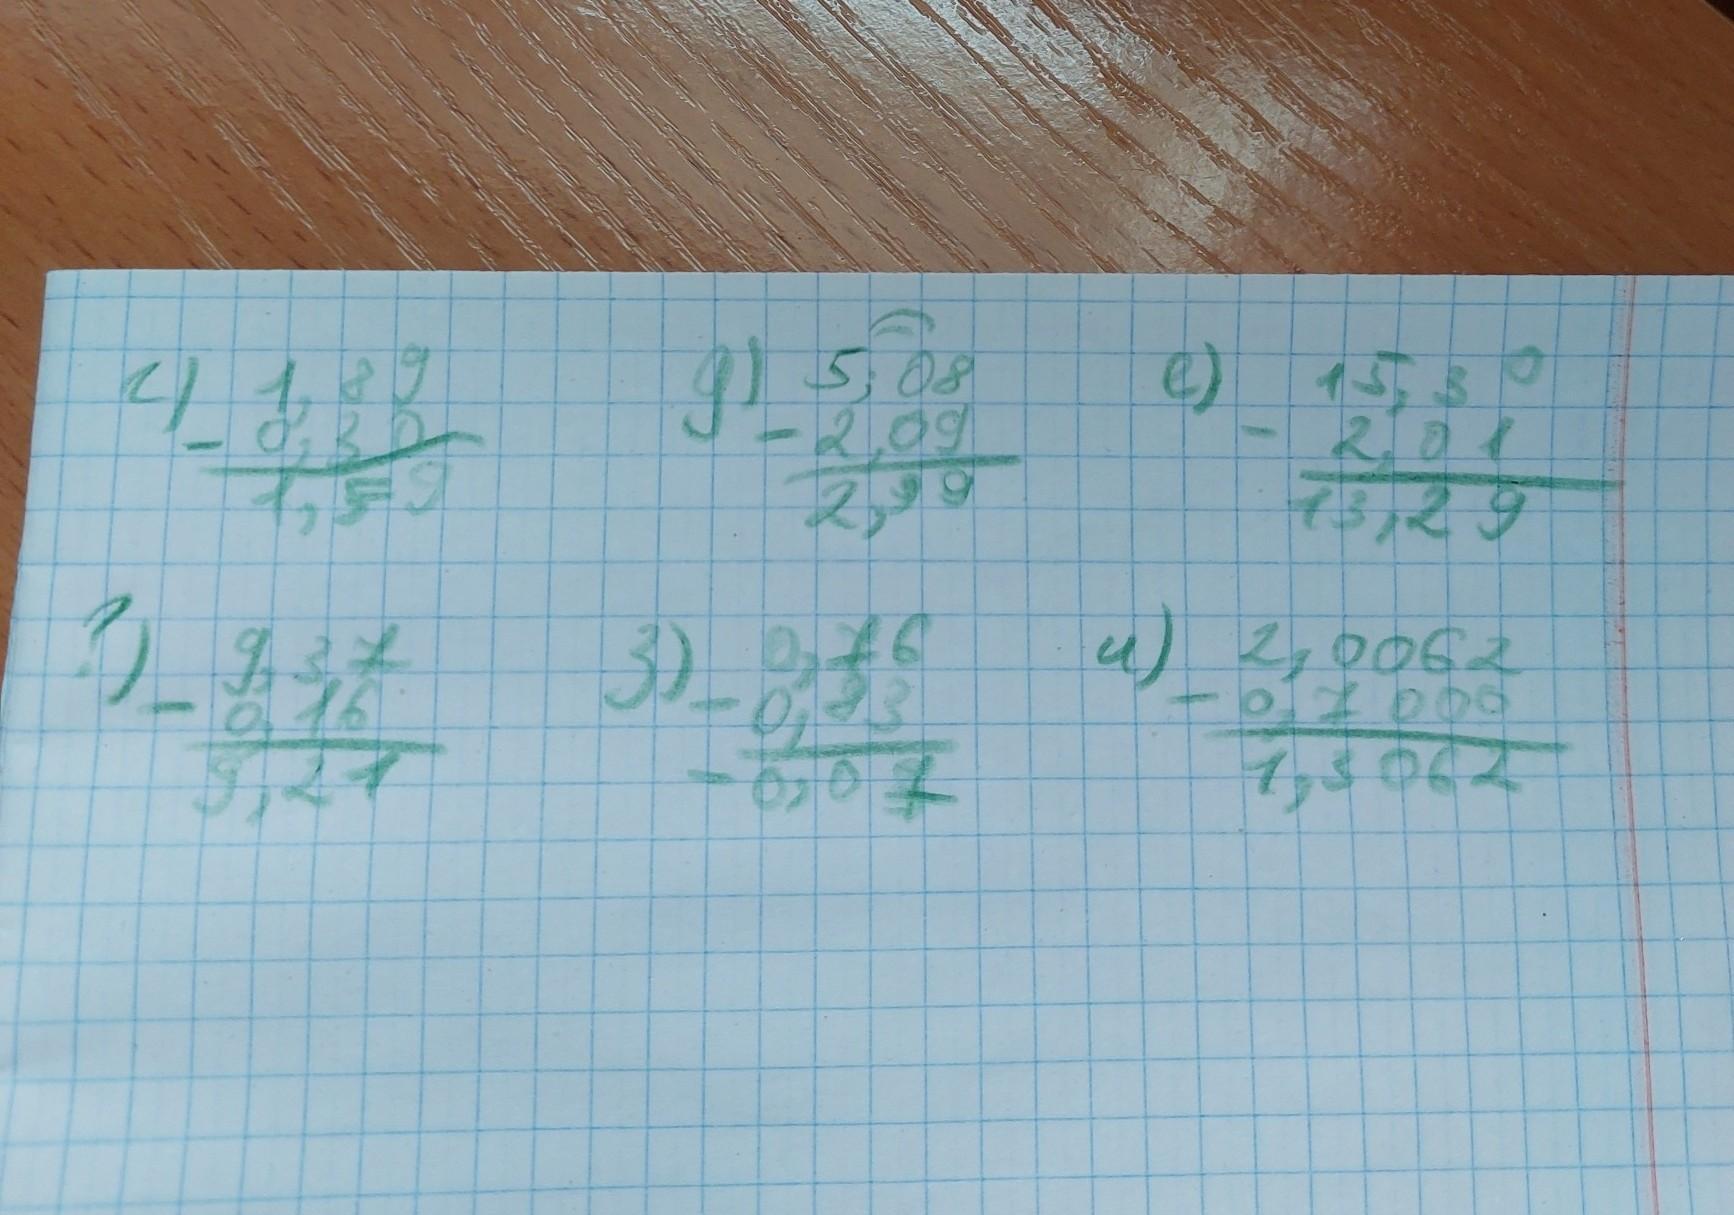 г) 1,89 д) 5,08 е) 15,30
- 0,30 - 2,09 - 2,01
1,59 2,99 13,29
9,37 з) 0,76 и) 2,0062
- 0,16 - 0,83 - 0,7000
9,21 - 0,07 1,3062